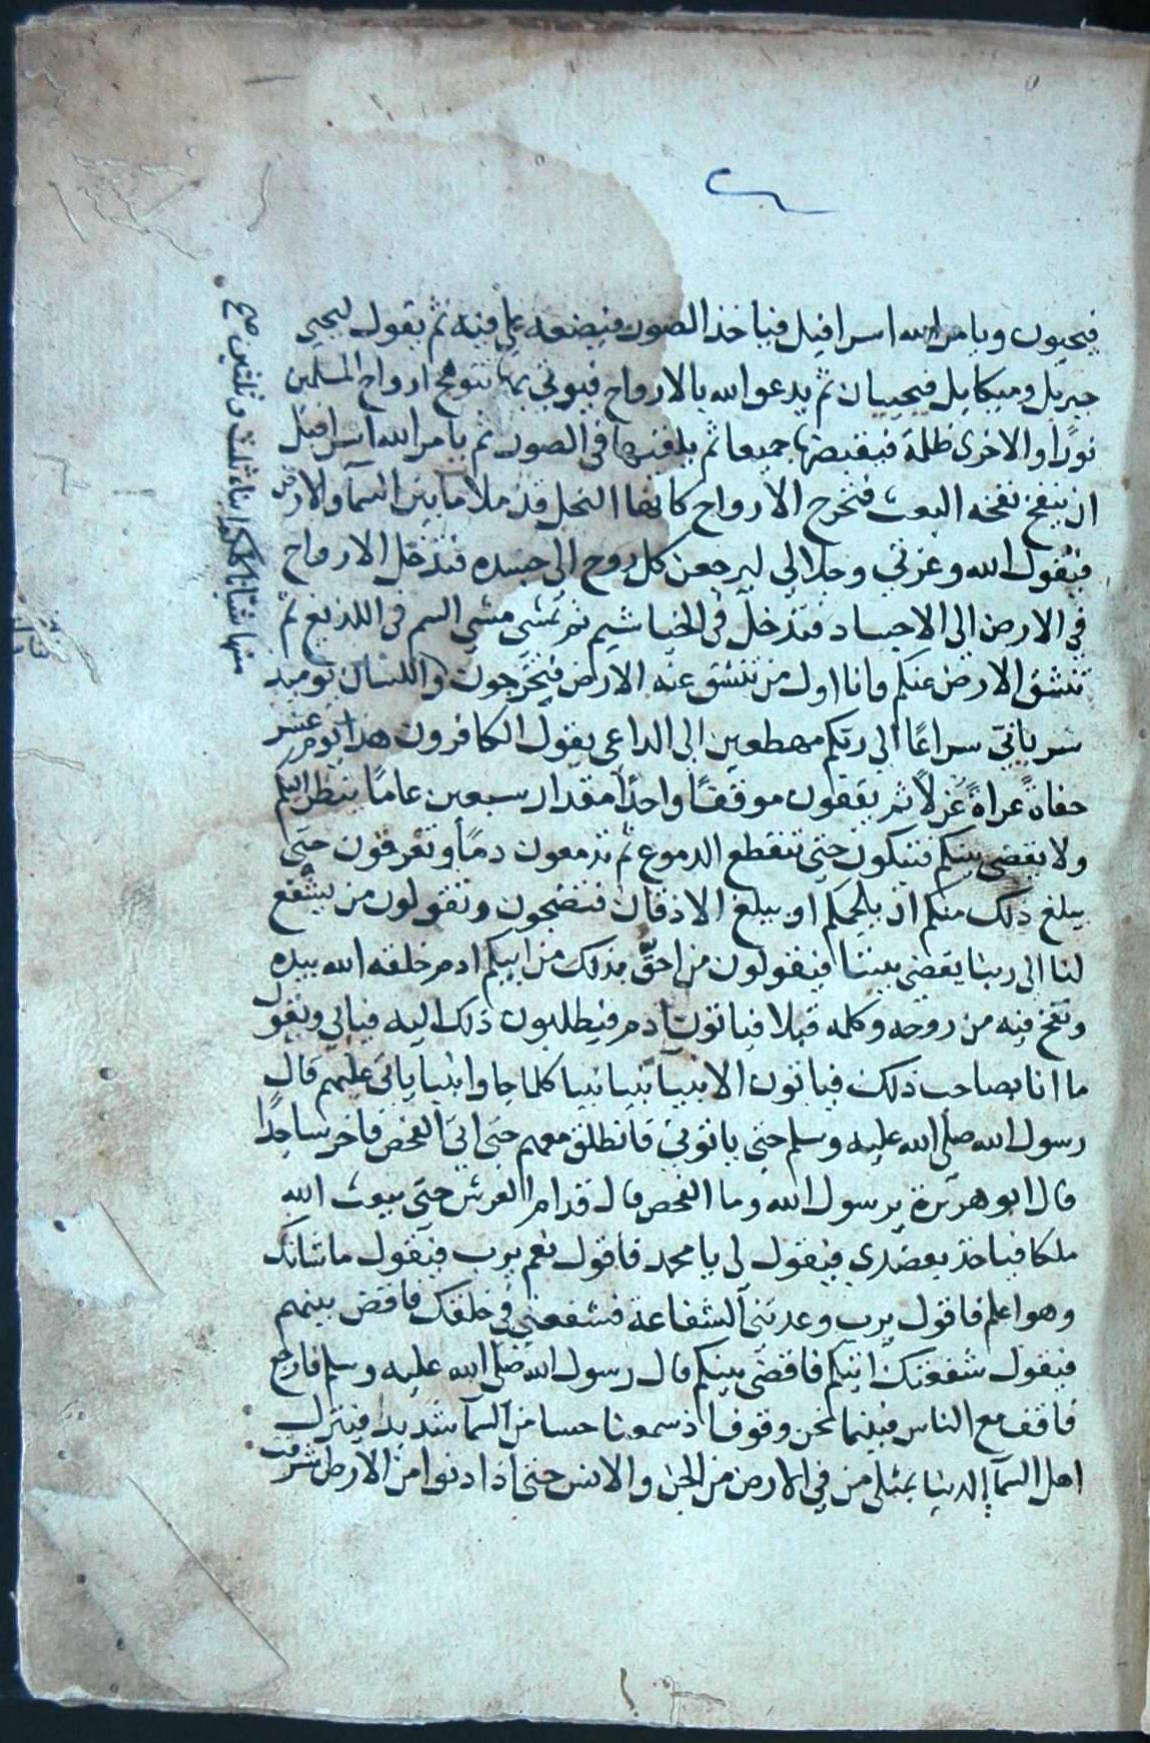 فيحيون ويامر الله اسرافيل فياخذ الصور فيضعه على فيه ثم يقول ليحيي
جبريل وميكايل فيحييان ثم يدعو الله بالارواح فيوتي بها تتوهج ارواح المسلمين
نورًا والاخرى ظلمة فيقبضها جميعا ثم يلقيها في الصور ثم يامر الله اسرافيل
ان ينفخ نفخه البعث فتخرج الارواح كانها النحل قد ملا ما بين السمآ والارض
فيقول الله وعزتي وجلالي ليرجعن كل روح الى جسده فتدخل الارواح
في الارض الى الاجساد فتدخل في الخياشيم ثم تمشي مشي السم في اللديغ ثم
تنشق الارض عنكم وانا اول من تنشق عنه الارض فتخرجون واللسان يوميذ
سرياني سراعًا الى ربكم مهطعين الى الداعي يقول الكافرون هذا يوم عسر
حفاة عراةً غرلاً ثم يقفون موقفًا واحدًا مقدار سبعين عامًا ينظر اليكم
ولا يقضى بينكم فتبكون حتى تنقطع الدموع ثم تدمعون دمًا وتعرقون حتى
يبلغ ذلك منكم ان يلجمكم او يبلغ الاذقان فتضجون وتقولون من يشفع
لنا الى ربنا يقضي بيننا فيقولون من احقّ بذلك من ابيكم ادم خلقه الله بيده
ونفخ فيه من روحه وكلمه قبلا فياتون ادم فيطلبون ذلك اليه فيابي ويقول
ما انا بصاحب ذلك فياتون الانبيآ نبيا نبيا كلما جاوا نبيا يابى عليهم قال
رسول الله صلى الله عليه وسلم حتى ياتوني فانطلق معهم حتى اتى الفحص فاخر ساجدًا
قال ابو هريرة يرسول الله وما الفحص قال قدام العرش حتى يبعث الله
ملكا فياخذ بعضدي فيقول لي يا محمد فاقول نعم يرب فيقول ما شانك
وهو اعلم فاقول يرب وعدتني الشفاعة فشفعني في خلقك فاقض بينهم
فيقول شفعتك اتيكم فاقضي بينكم قال رسول الله صلى الله عليه وسلم فارجع
فاقف مع الناس فبينما نحن وقوفا اذ سمعنا حسا من السمآ شديد فينزل
اهل السمآ الدنيا بمثلي من في الارض من الجن والانس حتى اذا دنوا من الارض شرقت
منها شبابا كلكم ابناء ثلث وثلثين صح